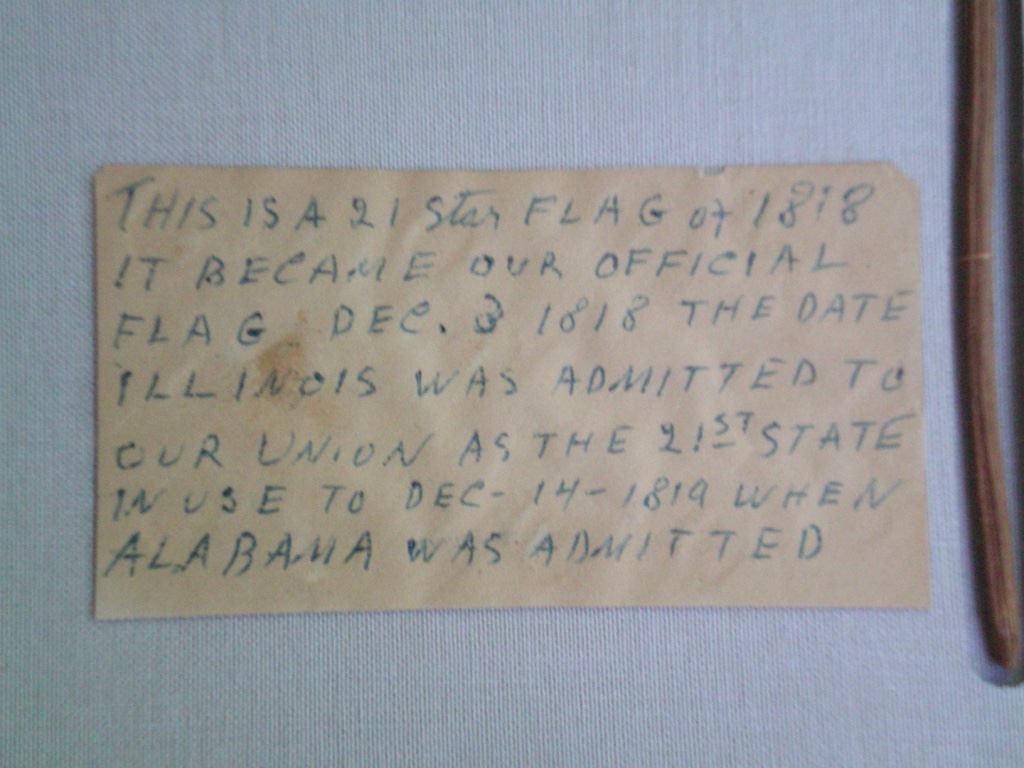 THIS IS A 21 Star FLAG of 1818
IT BECAME OUR OFFICIAL
FLAG DEC. 3 1818 THE DATE
ILLINOIS WAS ADMITTED TO
OUR UNION AS THE 21ST STATE
IN USE TO DEC- 14-1819 WHEN
ALABAMA WAS ADMITTED